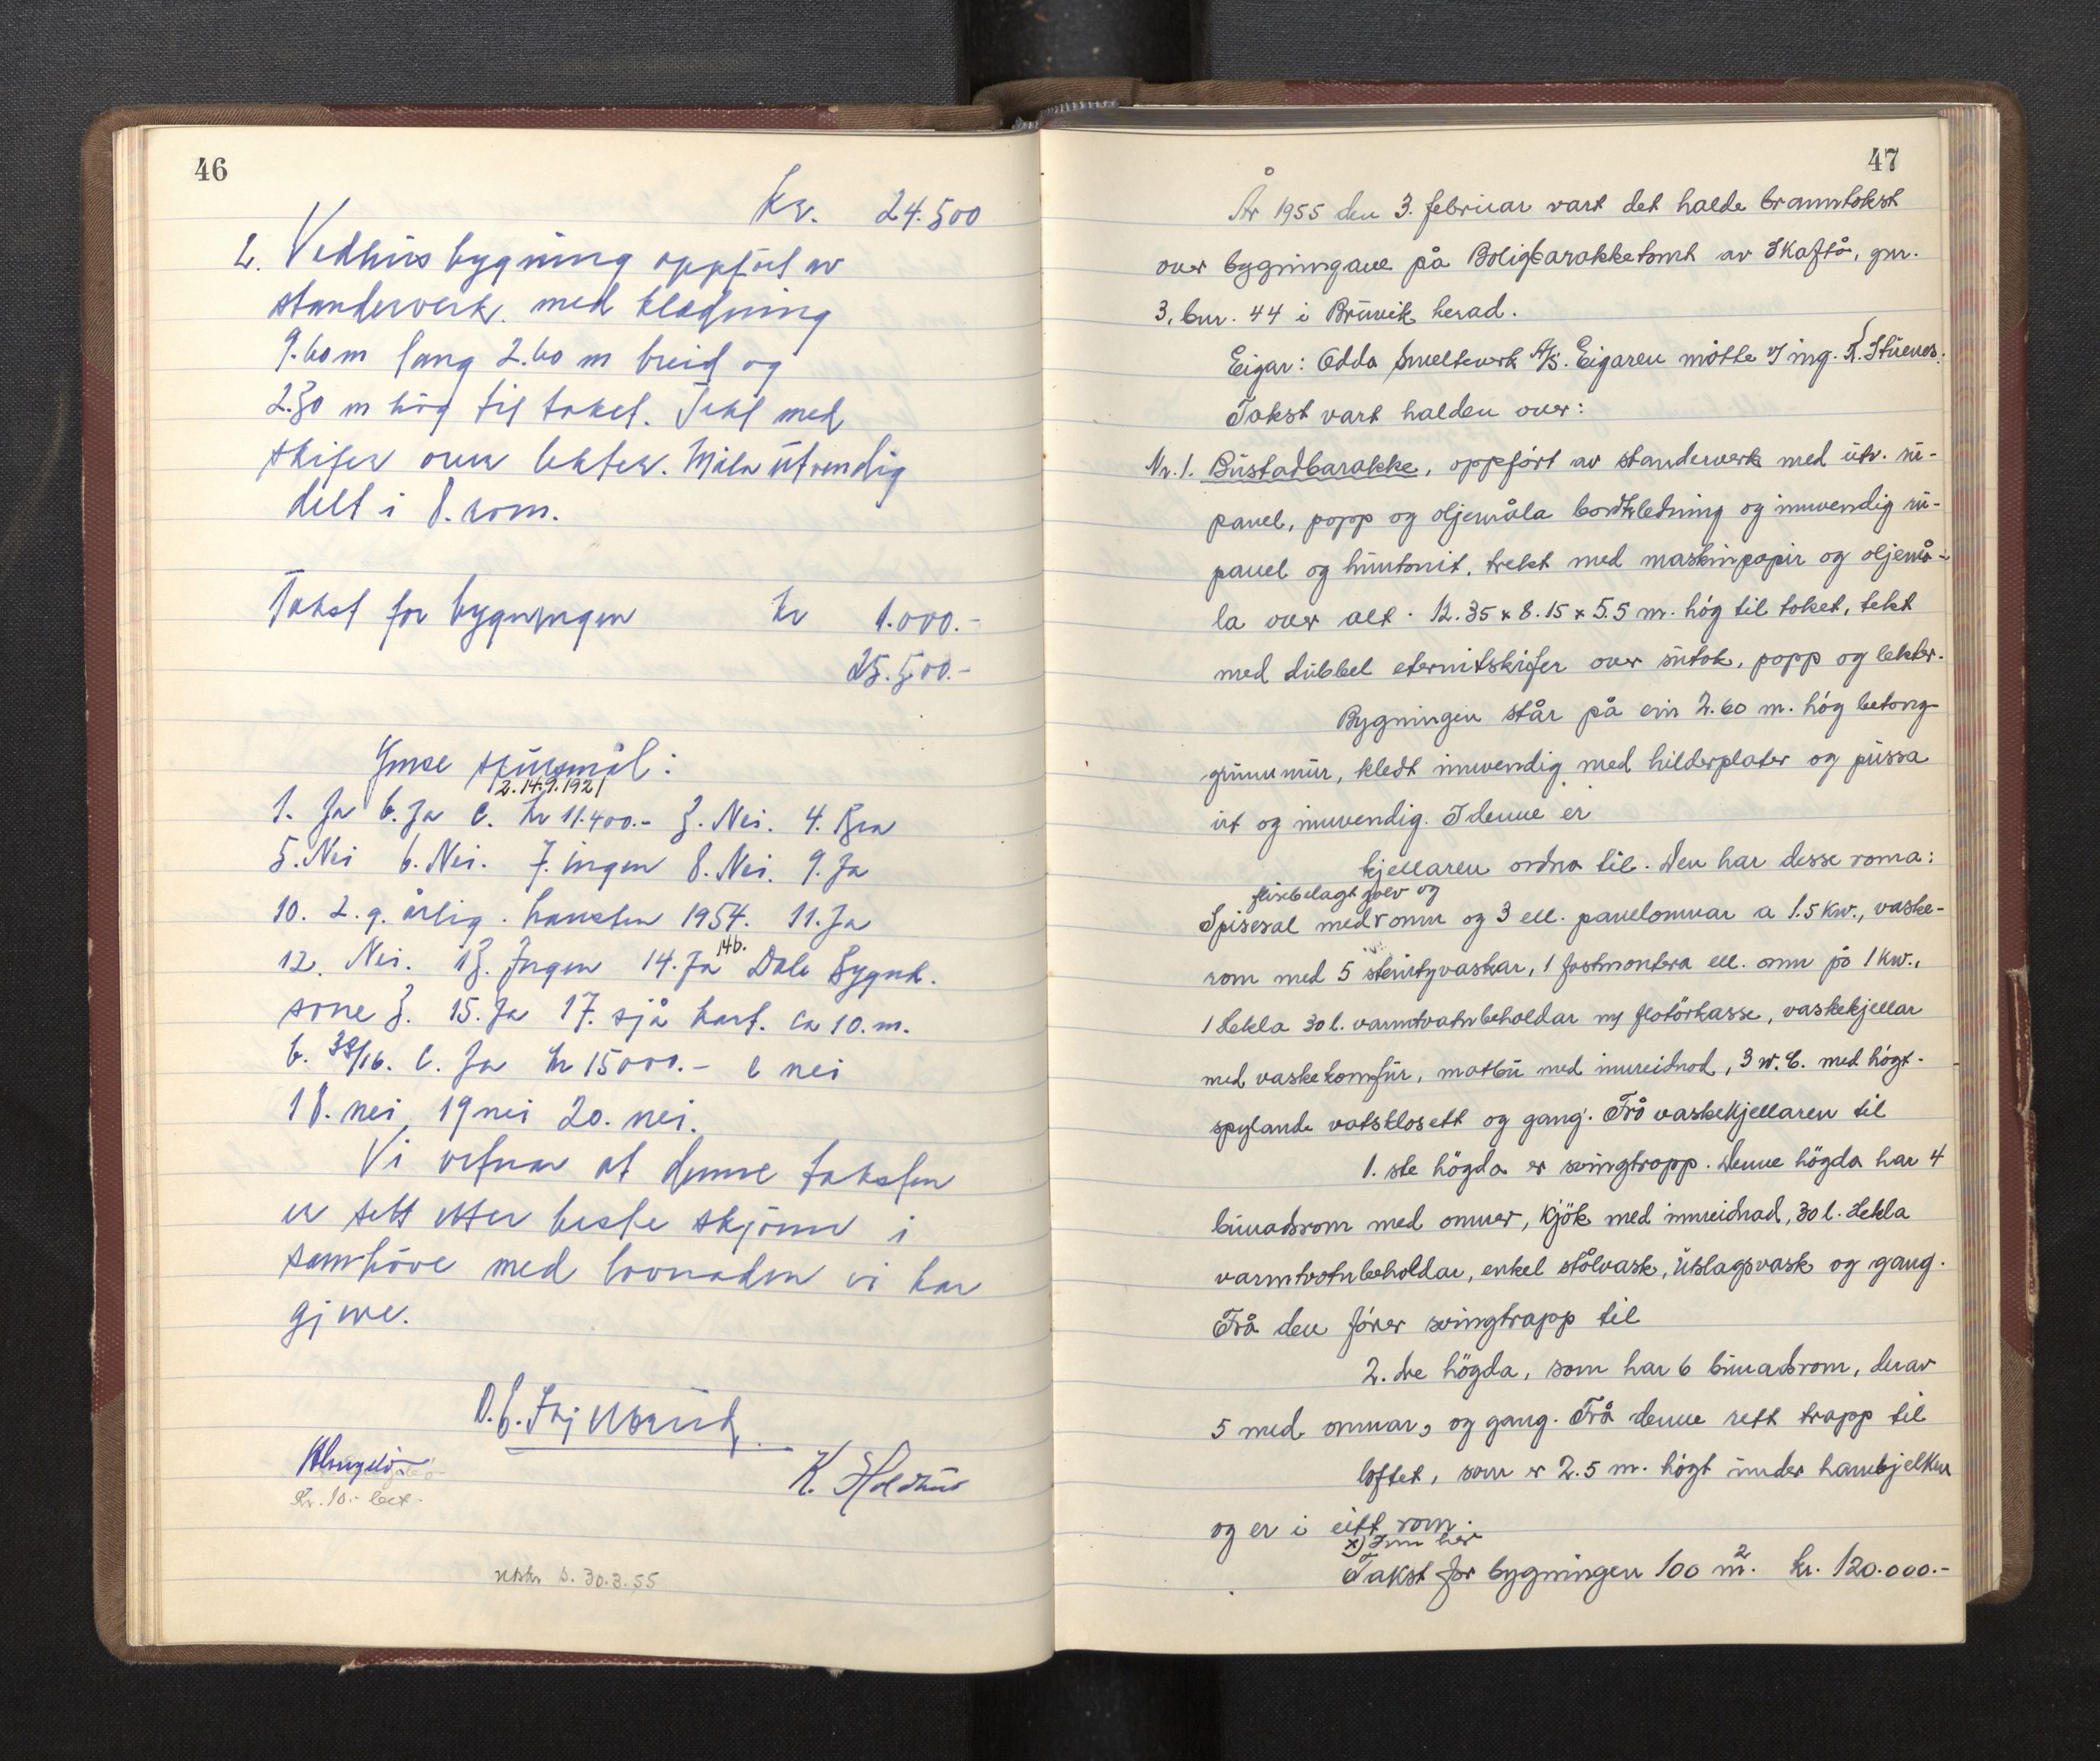 46
Kr. 24.500
2. Vedhusbygning oppført av
standerverk. med kledning
9.60 m lang 2.60 m breid og
2.30 m høg til taket. Tekt med
skifer over lekter. Måla utvendig
delt i 8. rom.
Takst for bygningen kr 1.000.-
25.500.-
Ymse spursmål:
2.14.9.1921
1. Ja b. Ja c. kr 11.400.- 3. Nei. 4. Bra
5. Nei 6. Nei. 7. ingen 8. Nei. 9. Ja
10. 2. g. årlig. hausten 1954. 11. Ja
12. Nei. 13. Ingen 14. Ja 14b. Dale Bygnk.
sone 3. 15. Ja 17. sjå kart. ca 10. m.
b. 38/16. c. Ja kr 15000.- e nei
18. nei, 19 nei 20. nei.
Vi vitnar at denne taksten
er sett etter beste skjønn i
samhøve med lovnaden vi har
gjeve.
K. Holdhus
Kr. 10.- bet.
utskr. d. 30.3.55
47
År 1955 den 3. februar vart det halde branntakst
over bygningane på Boligbarakketomt av Skaftå, gnr.
3, bnr. 44 i Bruvik herad.
Eigar: Odda Smelteverk A/S. Eigaren møtte v/ ing.
Takst vart halden over:
Nr. 1. Bustadbarakke, oppført av standerverk med utv. ru-
panel, papp og oljemåla bordkledning og innvendig ru-
panel og huntonit, trekt med maskinpapir og oljemå-
la over alt. 12.35 x 8.15 x 5.5 m. høg til taket, tekt
med dubbel eternitskifer over sutak, papp og lekter.
Bygningen står på ein 2.60 m. høg betong-
grunnmur, kledt innvendig med hilderplater og pussa
ut og innvendig. I denne er
kjellaren ordna til. Den har desse roma:
flisebelagt golv og
Spisesal med omn og 3 ell. panelomnar a 1.5 kw., vaske-
rom med 5 steintyvaskar, 1 fastmontera ell. omn på 1 kw.,
1 Hekla 30 l. varmtvatnbeholdar m/ flotørkasse, vaskekjellar
med vaskekomfur, matbu med innreidnad, 3 W.C. med høgt-
spylande vatsklosett og gang. Frå vaskekjellaren til
1. ste høgda er svingtrapp. Denne høgda har 4
bunadsrom med omner, kjøk med innreidnad, 30 l. Hekla
varmtvatnbeholdar, enkel stålvask, utslagsvask og gang.
Frå den fører svingtrapp til
2. dre høgda, som har 6 bunadsrom, derav
5 med omnar, og gang. Frå denne rett trapp til
loftet, som er 2.5 m. høgt under hanebjelken
og er i eitt rom.
x) Inn her
Takst for bygningen 100 m2. kr. 120.000.-